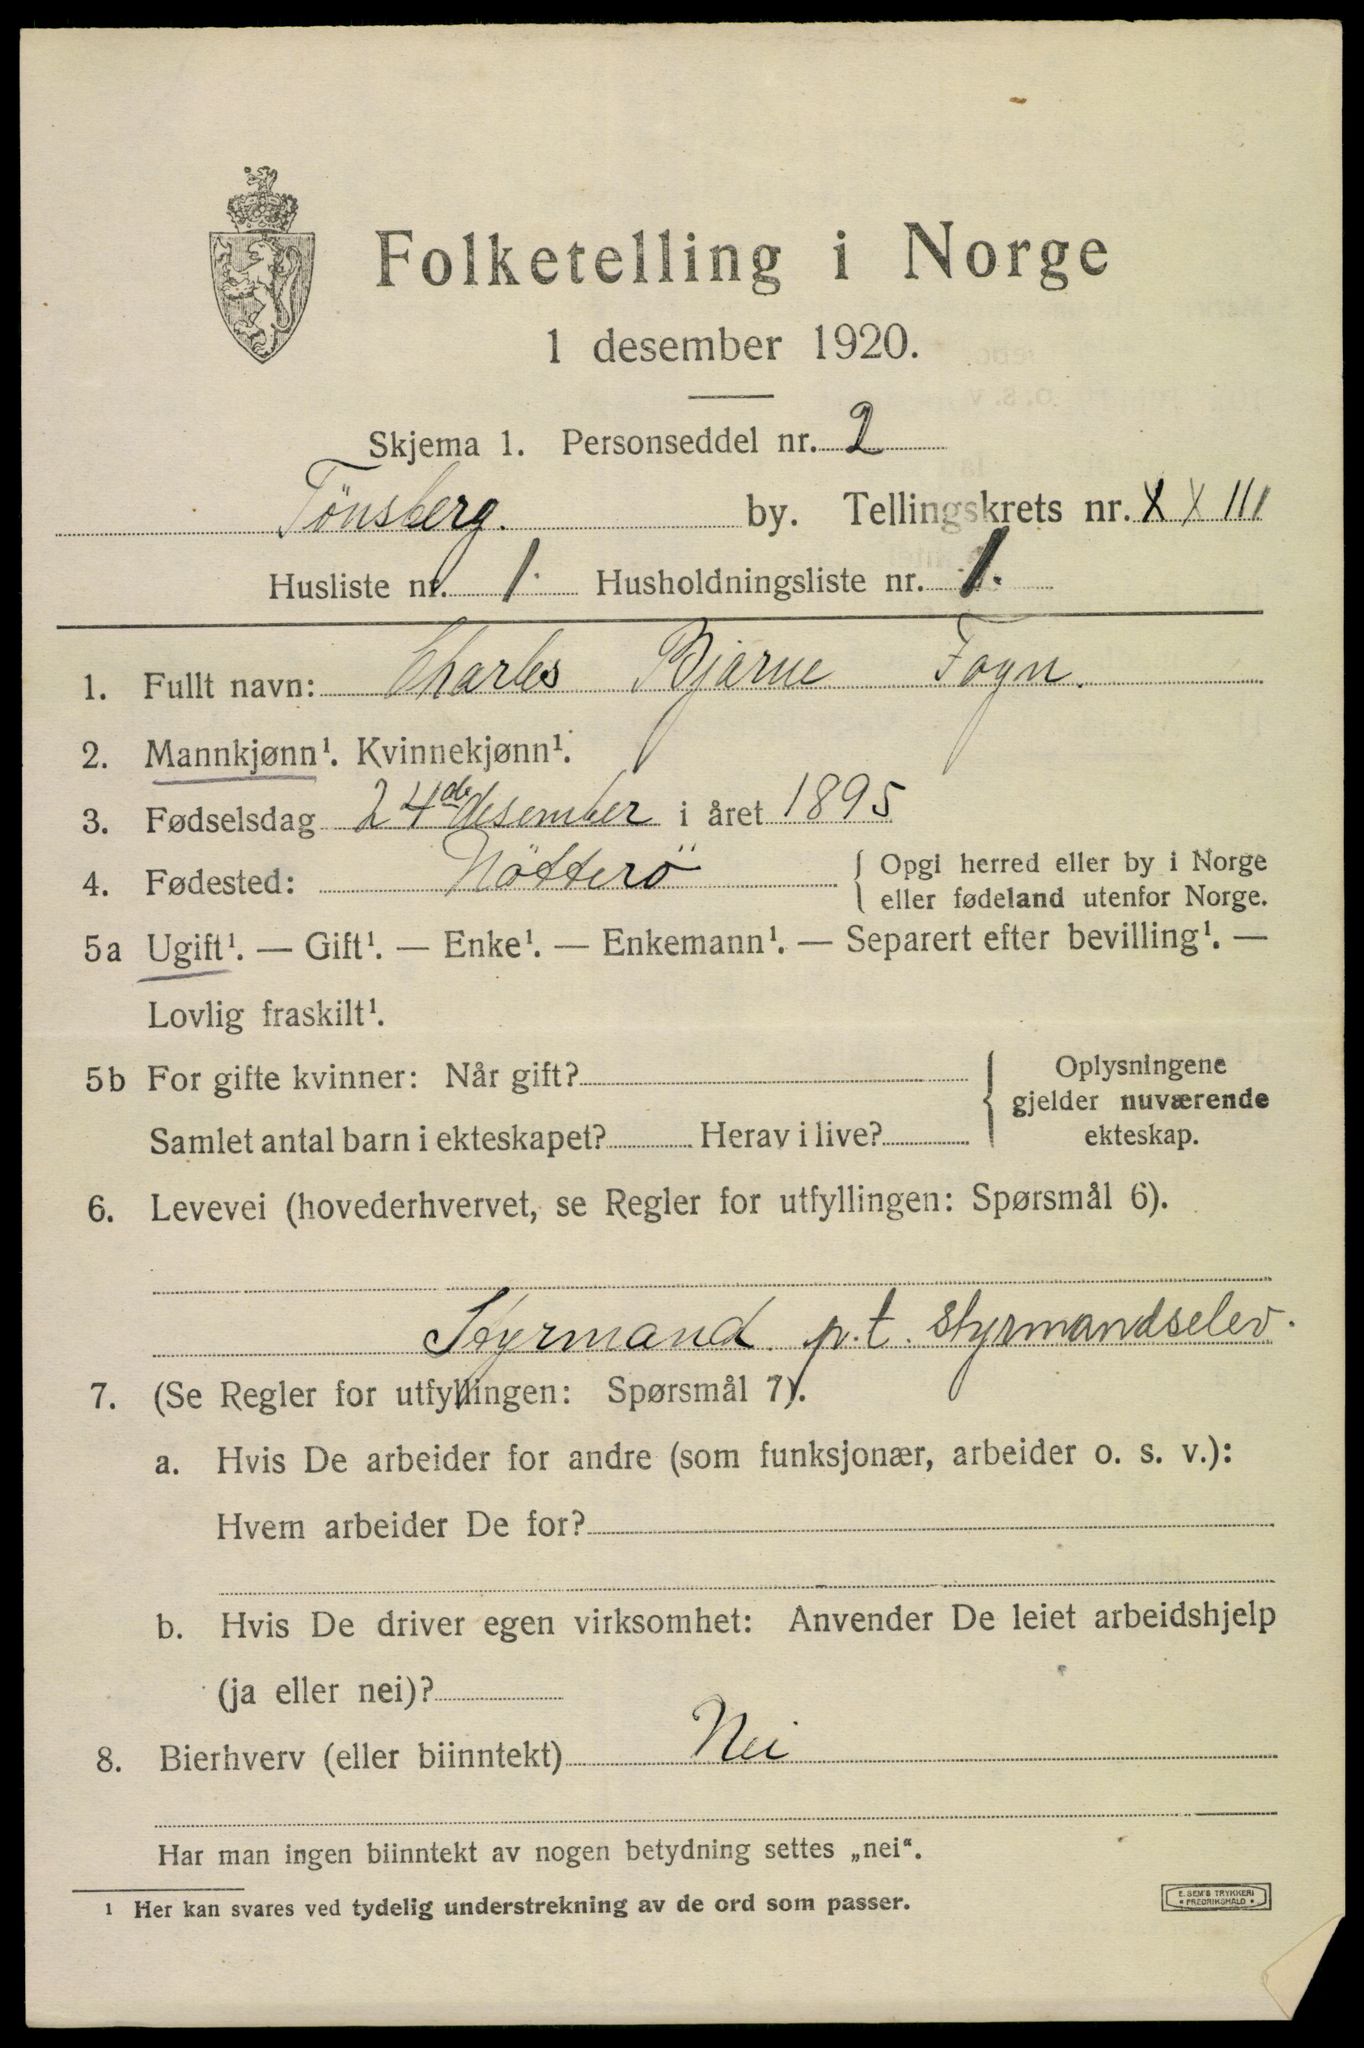 Folketelling i Norge
1 desember 1920.
Skjema 1. Personseddel nr. 2
Tönsberg. by. Tellingskrets nr. XXIII
Husliste nr. 1. Husholdningsliste nr. 1.
1. Fullt navn: Charles Bjarne Fogn.
2. Mannkjønn¹. Kvinnekjønn¹.
3. Fødselsdag 24de desember i året 1895
4. Fødested: Nötterö { Opgi herred eller by i Norge
eller fødeland utenfor Norge.
5a Ugift¹. — Gift¹. — Enke¹. — Enkemann¹. — Separert efter bevilling¹. —
Lovlig fraskilt¹.
5b For gifte kvinner: Når gift?
Samlet antal barn i ekteskapet? Herav i live?
{ Oplysningene
gjelder nuværende
ekteskap.
6. Levevei (hovederhvervet, se Regler for utfyllingen: Spørsmål 6).
Styrmand p.t. styrmandselev.
7. (Se Regler for utfyllingen: Spørsmål 7).
a. Hvis De arbeider for andre (som funksjonær, arbeider o. s. v.):
Hvem arbeider De for?
b. Hvis De driver egen virksomhet: Anvender De leiet arbeidshjelp
(ja eller nei)?
8. Bierhverv (eller biinntekt) Nei
Har man ingen biinntekt av nogen betydning settes „nei".
¹ Her kan svares ved tydelig understrekning av de ord som passer.
E. SEM'S TRYKKERI
FREDRIKSHALD